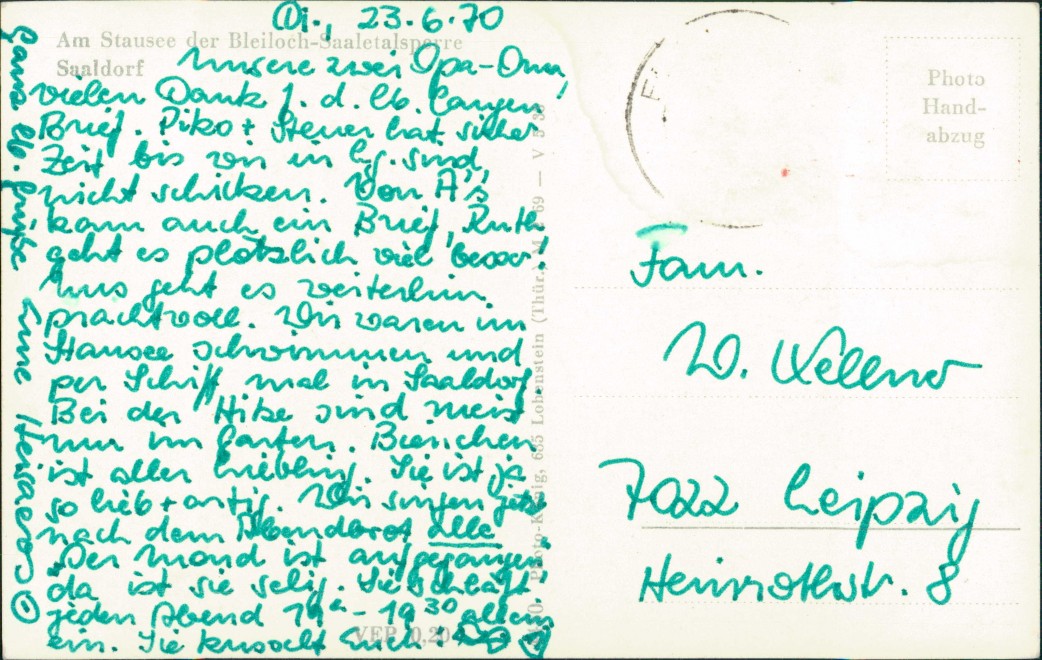 Di., 23.6.70
Am Stausee der Bleiloch-Saaletalsperre
Saaldorf
Unsere zwei Opa-Oma,
vielen Dank f. d. lb. langen
Brief. Piko + Steuer hat sicher
Zeit bis wir in Lg. sind,
nicht schicken. Von A's
kam auch ein Brief, Ruth
geht es plötzlich viel besser!
Uns geht es weiterhin
prachtvoll. Wir waren im
Stausee schwimmen und
per Schiff mal in Saaldorf.
Bei der Hitze sind meist
nur im Garten. Bienchen
ist aller Liebling. Sie ist ja
so lieb + artig. Wir singen jetzt
nach dem Abendbrot alle
"Der Mond ist aufgegangen"
da ist sie selig. Sie schläft
jeden Abend 19 - 19 30 allein
ein. Sie knutscht Euch!
Ganz lb. Grüße Eure
VEP 0,20
Photo-König, 685 Lobenstein (Thür.) 69 — V
Photo
Hand-
abzug
Fam.
W. Kellner
7022 Leipzig
Heinrothstr. 8